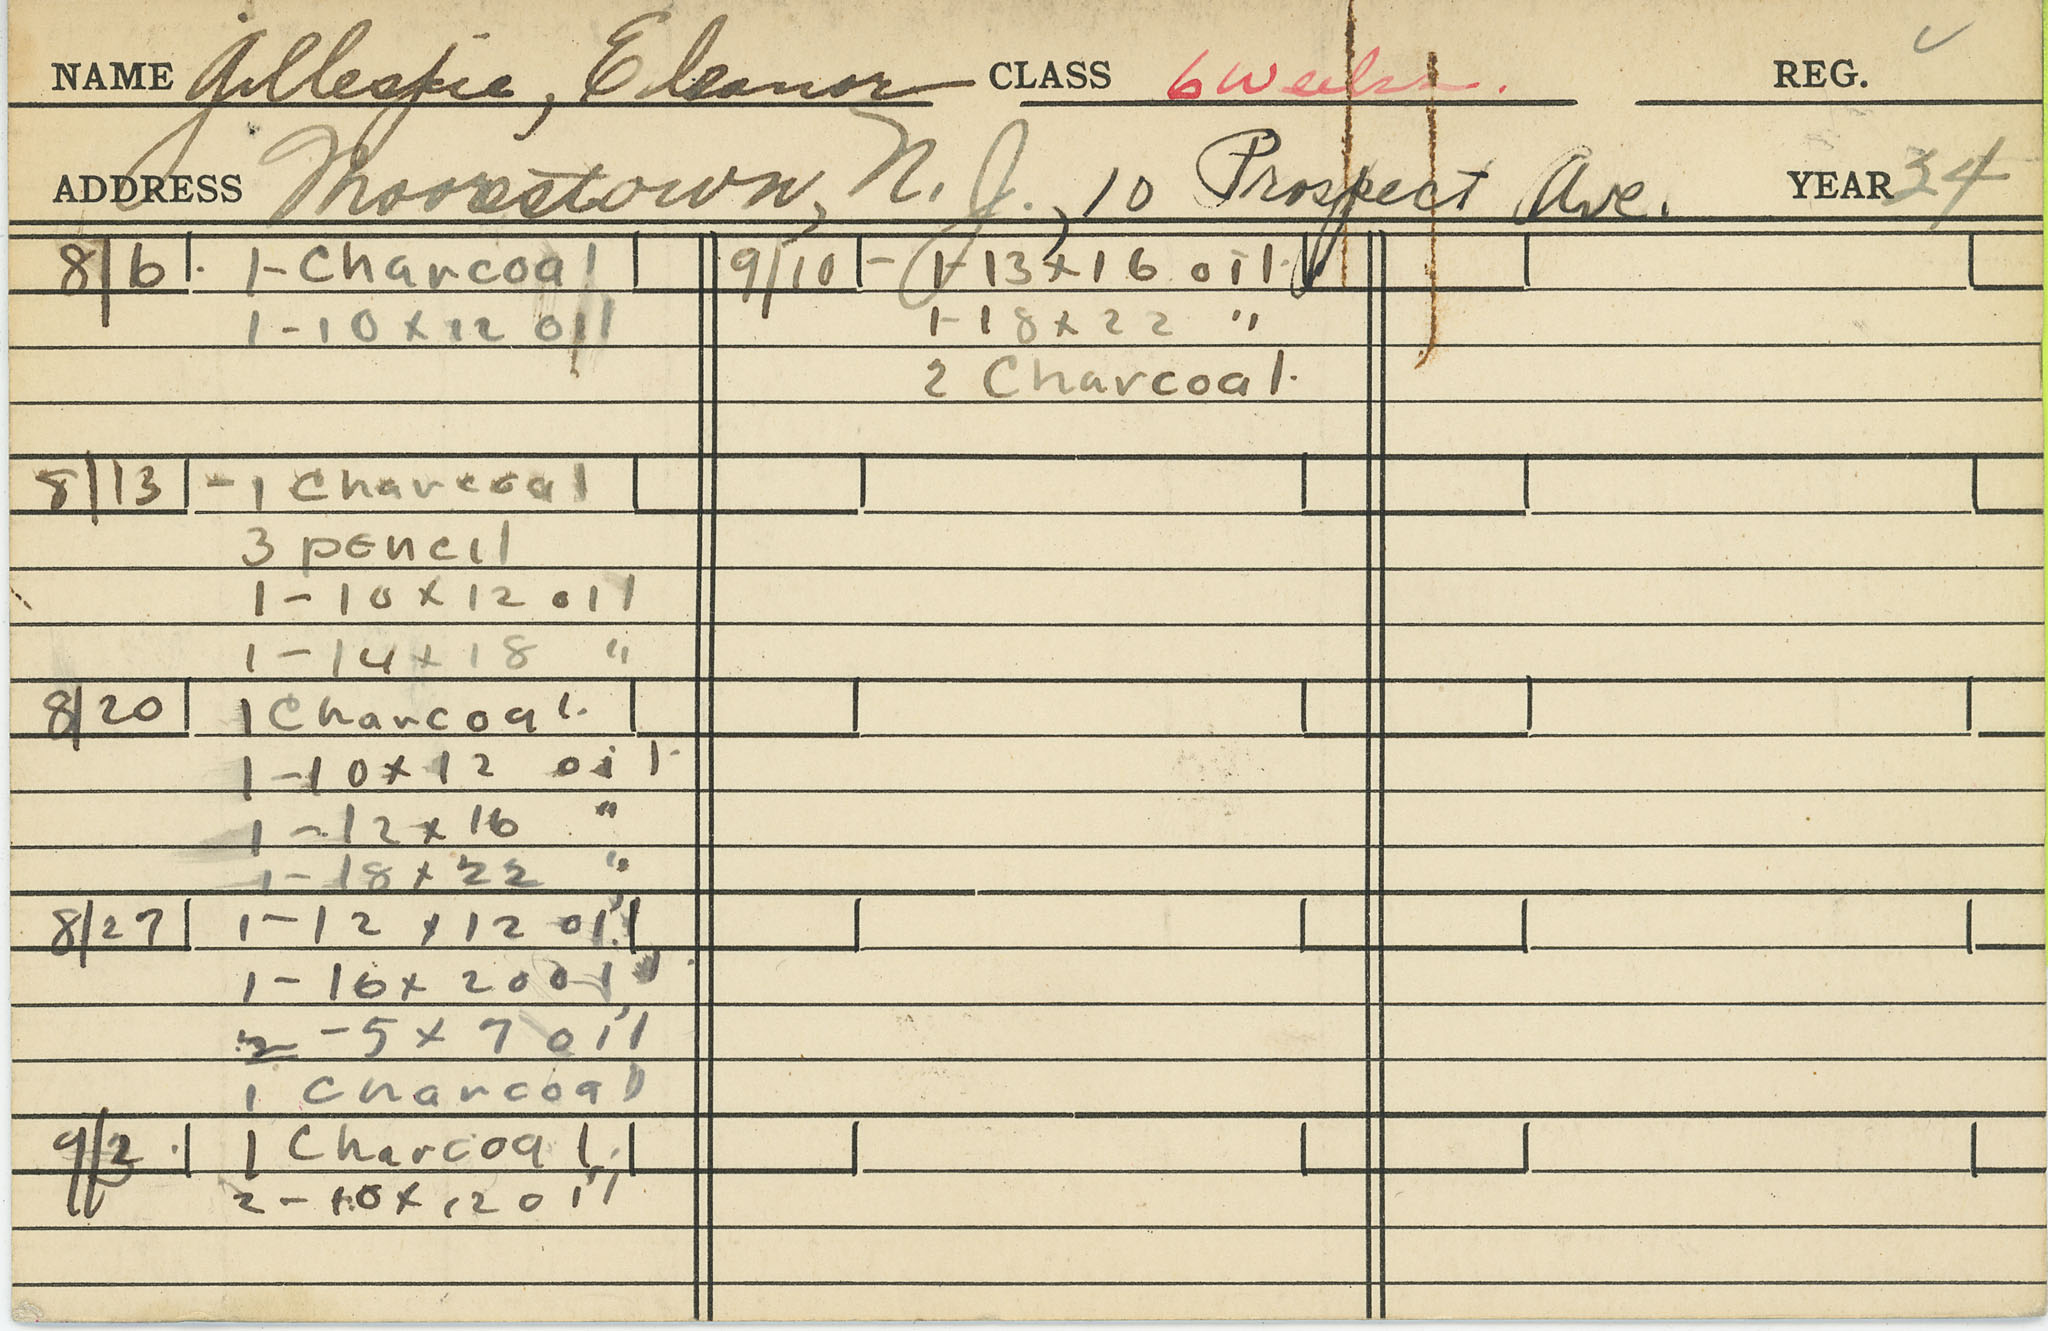 NAME Gillespie, Eleanor CLASS 6 weeks. REG. ✓
ADDRESS Moorestown, N. J., 10 Prospect Ave. YEAR 34
8/6 1- Charcoal
1-10 x 12 oil
8/13 - 1 Charcoal
3 pencil
1-10 x 12 oil
1-14 x 18 "
8/20 1 Charcoal.
1-10 x 12 oil.
1-12 x 16 "
1-18 x 22 "
8/27 1-12 x 12 oil
1-16 x 20 oil
2 -5 x 7 oil
1 Charcoal
9/2 1 Charcoal.
2-10 x 12 oil
9/10 - 1-13 x 16 oil.
1-18 x 22 "
2 Charcoal.